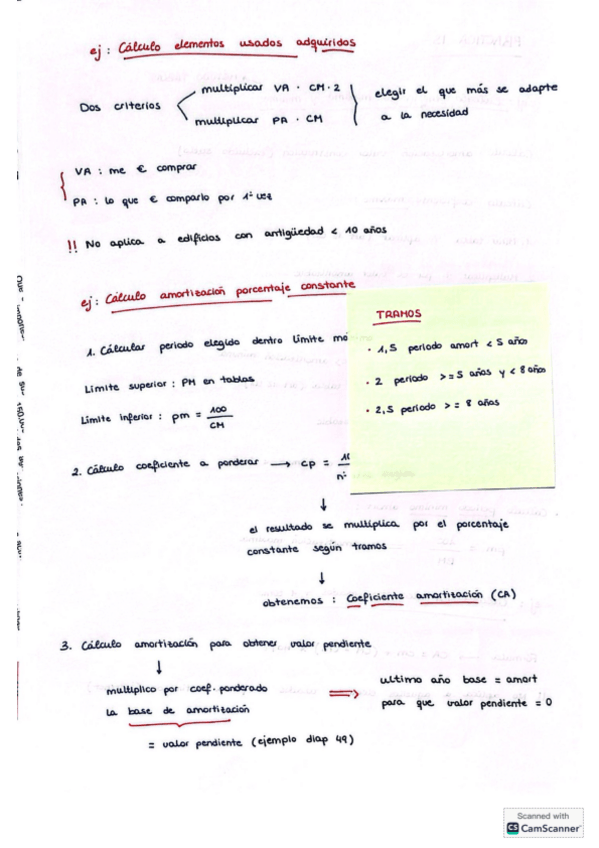 ej: Cálculo elementos usados adquiridos
Dos criterios
multiplicar VA · CM · 2
multiplicar PA · CM
elegir el que más se adapte
a la necesidad
VA : me € comprar
PA : lo que € comparlo por 1ª vez
!! No aplica a edificios con antigüedad < 10 años
ej: Cálculo amortización porcentaje constante
1. Cálcular periodo elegido dentro límite
Límite superior : PM en tablas
Límite inferior : pm = 100
CM
TRAMOS
· 1,5 periodo amort < 5 años
· 2 periodo >= 5 años y < 8 años
· 2,5 periodo >= 8 años
2. Cálculo coeficiente a ponderar → CP =
↓
el resultado se multiplica por el porcentaje
constante según tramos
↓
obtenemos : Coeficiente amortización (CA)
3. Cálculo amortización para obtener valor pendiente
↓
multiplico por coef. ponderado
la base de amortización
= valor pendiente (ejemplo diap 49)
⇒ ultimo año base = amort
para que valor pendiente = 0
Scanned with
CS CamScanner